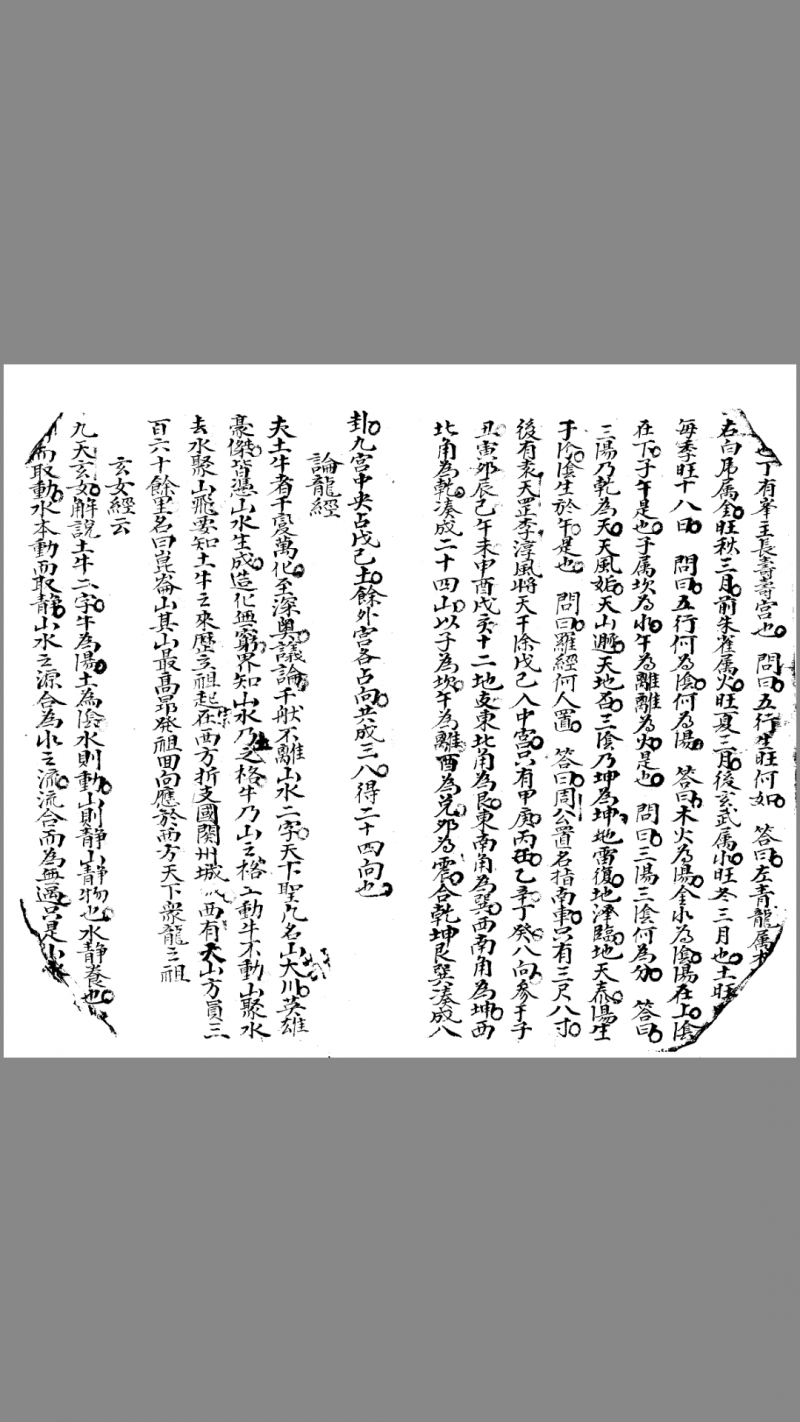 也丁有峯主長壽壽宮也 問曰五行生旺何如 答曰左青龍属木
右白虎属金旺秋三月前朱雀属火旺夏三月後玄武属水旺冬三月也土旺
每季旺十八日 問曰五行何為陰何為陽 答曰木火為陽金水為陰陽在上陰
在下子午是也子属坎為水午為離離為火是也 問曰三陽三陰何為分 答曰
三陽乃乾為天天風姤天山遯天地否三陰乃坤為坤地雷復地澤臨地天泰陽生
于陰陰生於午是也 問曰羅經何人置 答曰周公置名指南車只有三尺八寸
後有袁天罡李淳風將天干除戊己入中宮只有甲庚丙壬乙辛丁癸八向參于子
丑寅卯辰巳午未申酉戌亥十二地支東北角為艮東南角為巽西南角為坤西
北角為乾湊成二十四山以子為坎午為離酉為兌卯為震合乾坤艮巽湊成八
卦九宮中央占戊己土餘外宮各占向共成三八得二十四向也
論龍經
夫土牛者千變萬化至深奧議論千般不離山水二字天下聖凡名山大川英雄
豪傑皆憑山水生成造化無窮界知山水乃之格牛乃山之格土動牛不動山聚水
去水聚山飛要知土牛之來歷玄祖起在西方折支國関州城西有大山方員三
百六十餘里名曰崑崙山其山最高昻發祖回向應於西方天下衆龍之祖
玄女經云
九天玄女解說土牛二字牛為陽土為陰水則動山則静山静物也水静養也
而取動水本動而取静山水之源合為水之流流合而為無過只是山水